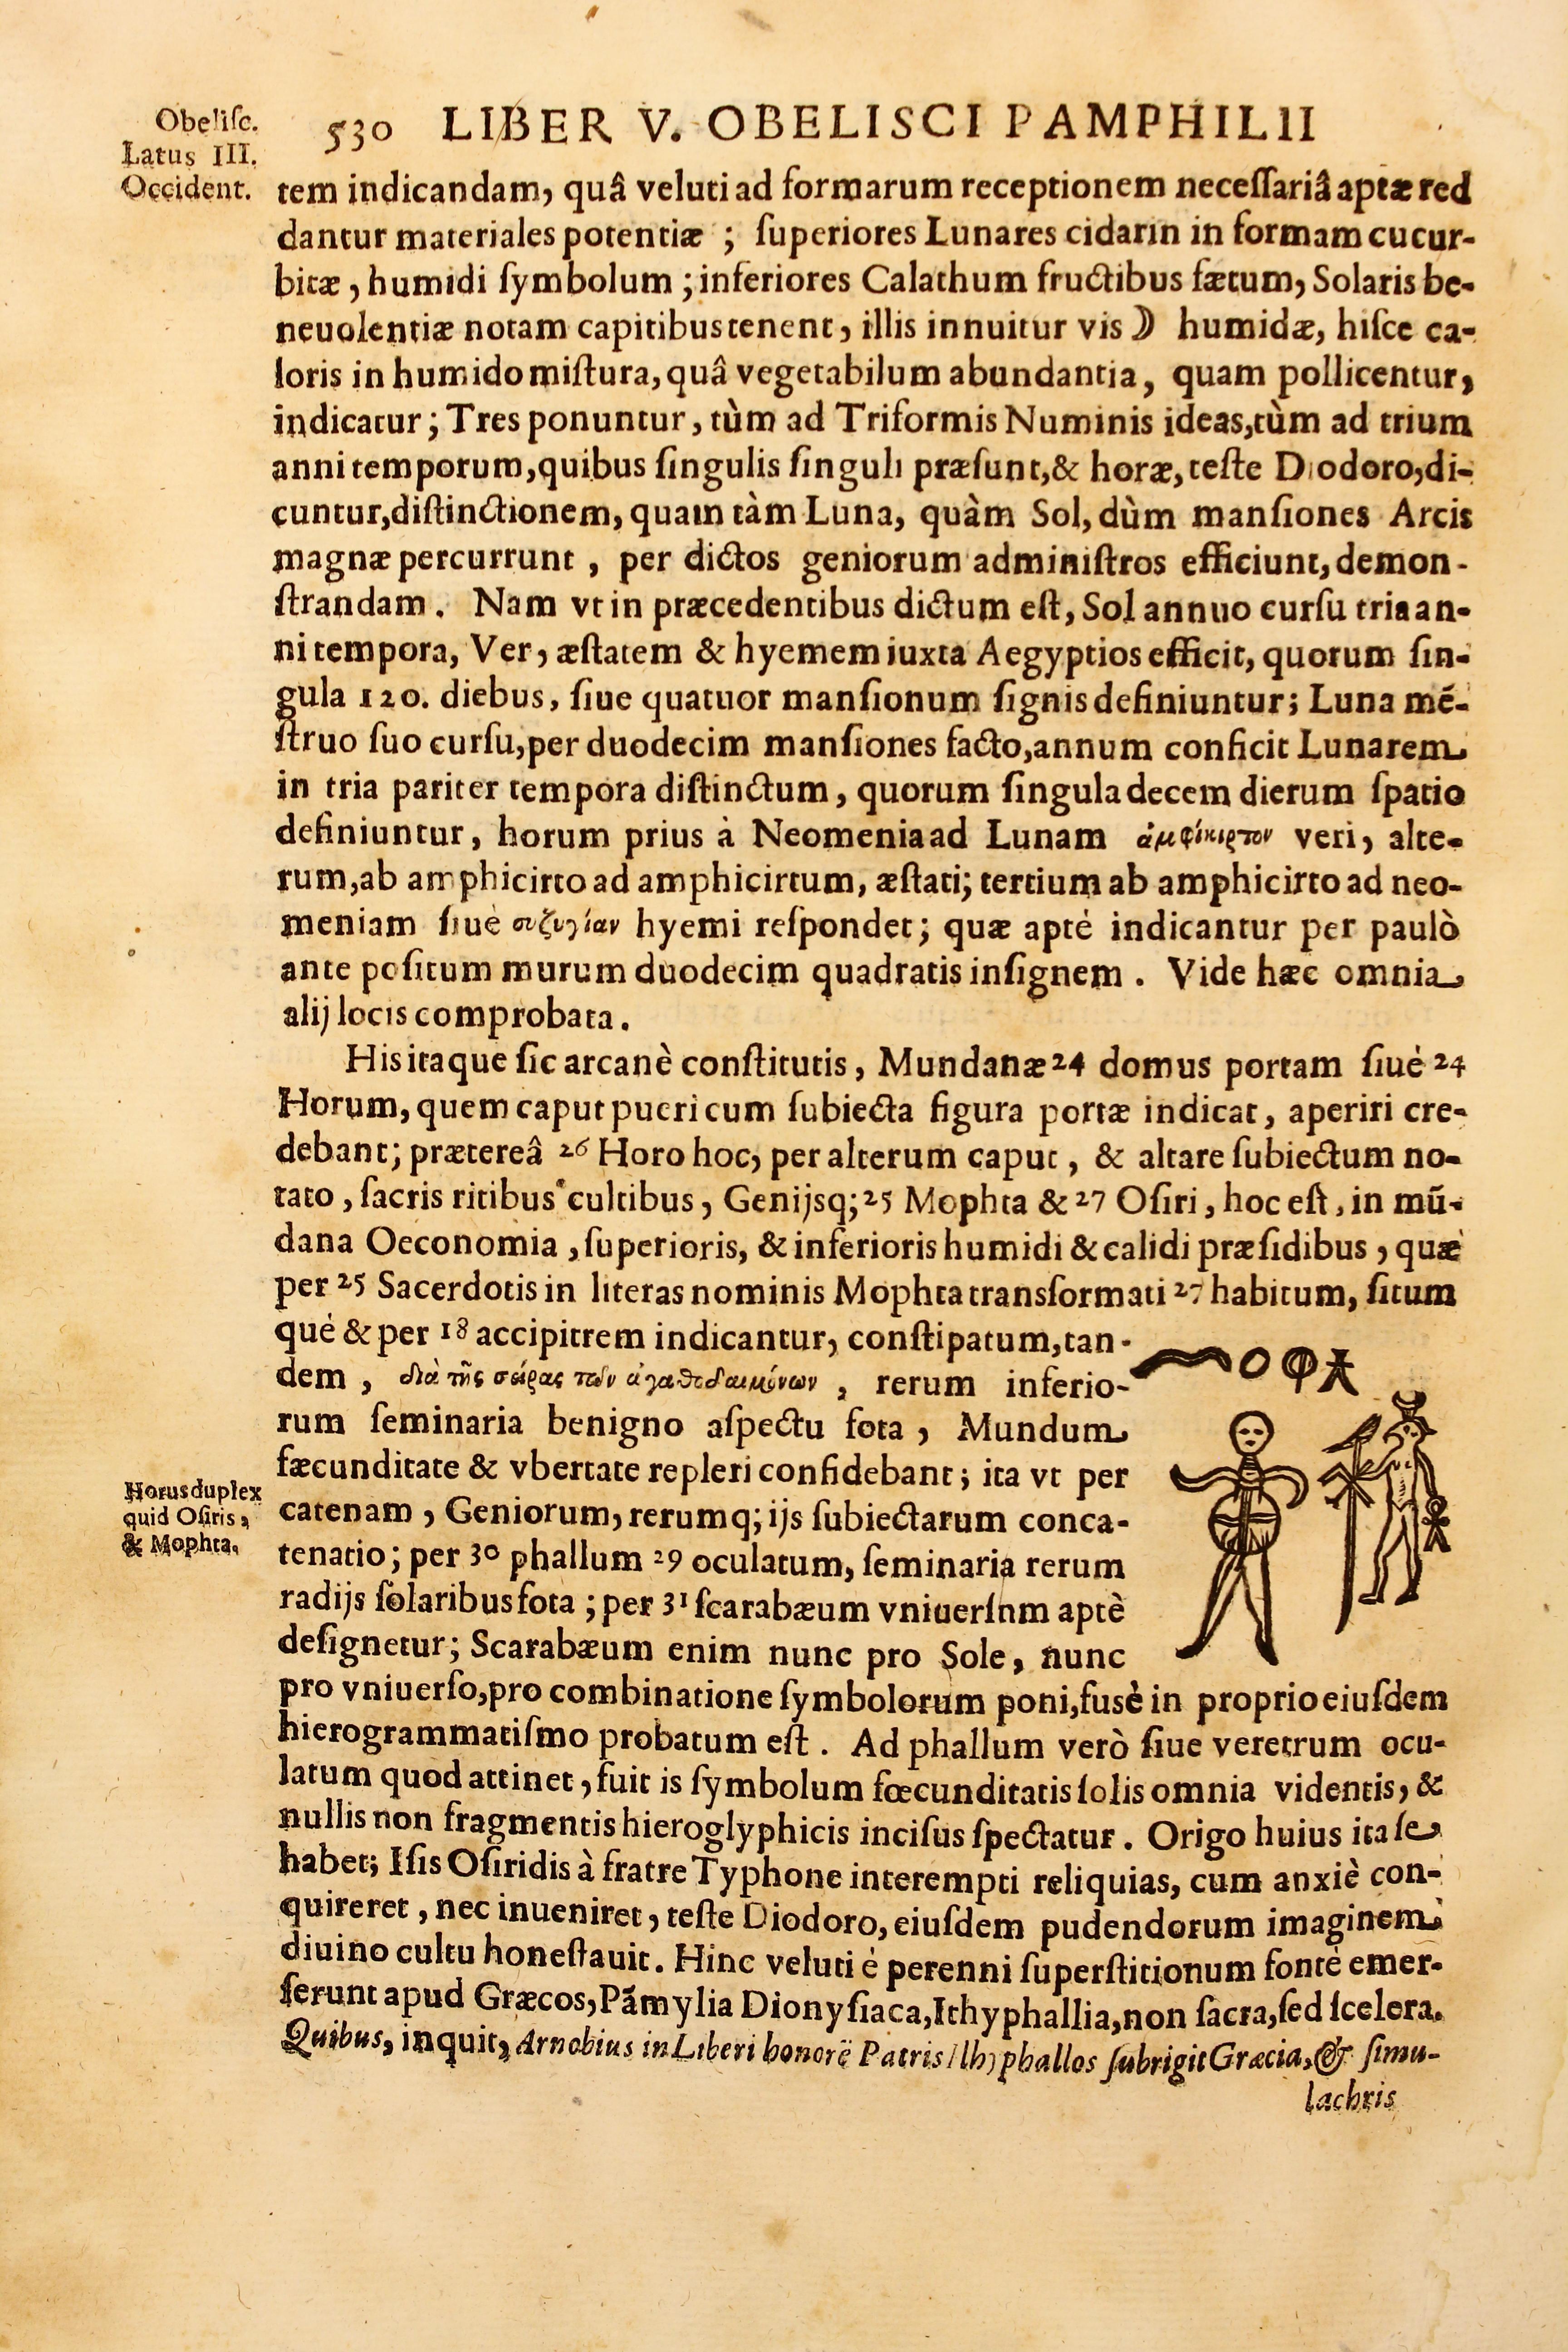 Obeliſc.
Latus III.
Occident.
530 LIBER V. OBELISCI PAMPHILII
tem indicandam, quâ veluti ad formarum receptionem neceſſariâ aptæ red
dantur materiales potentiæ ; ſuperiores Lunares cidarin in formam cucur-
bitæ , humidi ſymbolum ; inferiores Calathum fructibus fætum, Solaris be-
neuolentiæ notam capitibus tenent, illis innuitur vis ☽ humidæ, hiſce ca-
loris in humido miſtura, quâ vegetabilum abundantia, quam pollicentur,
indicatur ; Tres ponuntur, tùm ad Triformis Numinis ideas, tùm ad trium
anni temporum, quibus ſingulis ſinguli præſunt, & horæ, teſte Diodoro, di-
cuntur, diſtinctionem, quam tàm Luna, quàm Sol, dùm manſiones Arcis
magnæ percurrunt , per dictos geniorum adminiſtros efficiunt, demon-
ſtrandam. Nam vt in præcedentibus dictum eſt, Sol annuo curſu tria an-
ni tempora, Ver, æſtatem & hyemem iuxta Aegyptios efficit, quorum ſin-
gula 120. diebus, ſiue quatuor manſionum ſignis definiuntur; Luna mē-
ſtruo ſuo curſu, per duodecim manſiones facto, annum conficit Lunarem
in tria pariter tempora diſtinctum, quorum ſingula decem dierum ſpatio
definiuntur, horum prius à Neomenia ad Lunam ἀμφίκιρτον veri, alte-
rum, ab amphicirto ad amphicirtum, æſtati; tertium ab amphicirto ad neo-
meniam ſiuè συζυγίαν hyemi reſpondet; quæ aptè indicantur per paulò
ante poſitum murum duodecim quadratis inſignem . Vide hæc omnia
alij locis comprobata.
His itaque ſic arcanè conſtitutis, Mundanæ 24 domus portam ſiuè 24
Horum, quem caput pueri cum ſubiecta figura portæ indicat, aperiri cre-
debant; prætereâ 26 Horo hoc, per alterum caput, & altare ſubiectum no-
tato, ſacris ritibus cultibus, Genijsq; 25 Mophta & 27 Oſiri, hoc eſt, in mū-
dana Oeconomia, ſuperioris, & inferioris humidi & calidi præſidibus, quæ
per 25 Sacerdotis in literas nominis Mophta transformati 27 habitum, ſitum
què & per 18 accipitrem indicantur, conſtipatum, tan-
dem , διὰ τῆς σείρας τῶν ἀγαθοδαιμόνων , rerum inferio-
rum ſeminaria benigno aſpectu fota , Mundum
fæcunditate & vbertate repleri confidebant; ita vt per
catenam , Geniorum, rerumq; ijs ſubiectarum conca-
tenatio; per 30 phallum 29 oculatum, ſeminaria rerum
radijs ſolaribus fota ; per 31 ſcarabæum vniuerſum aptè
deſignetur; Scarabæum enim nunc pro Sole, nunc
pro vniuerſo, pro combinatione ſymbolorum poni, fusè in proprio eiuſdem
hierogrammatiſmo probatum eſt . Ad phallum verò ſiue veretrum ocu-
latum quod attinet, fuit is ſymbolum fœcunditatis ſolis omnia videntis, &
nullis non fragmentis hieroglyphicis inciſus ſpectatur. Origo huius ita ſe
habet; Iſis Oſiridis à fratre Typhone interempti reliquias, cum anxiè con-
quireret , nec inueniret, teſte Diodoro, eiuſdem pudendorum imaginem
diuino cultu honeſtauit. Hinc veluti è perenni ſuperſtitionum fontè emer-
ſerunt apud Græcos, Pāmylia Dionyſiaca, Ithyphallia, non ſacra, ſed ſcelera.
Quibus, inquit, Arnobius in Liberi honorē Patris Ithyphallos ſubrigit Græcia, & ſimu-
lachris
Horus duplex
quid Oſiris,
& Mophta.